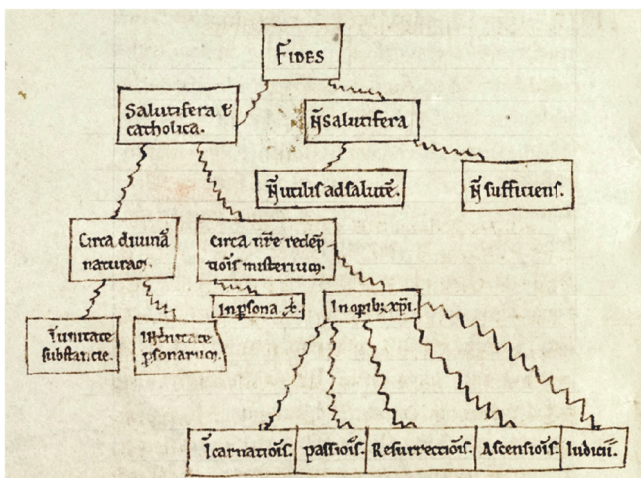 FIDES
Salutifera &
catholica.
N̄ salutifera
N̄ utilis ad salutē.
N̄ sufficiens.
Circa divinā
naturam.
Circa nr̄e redēp
tiōis misterium.
In ꝑsona
In oꝑib; xp̄i.
Ī unitate
substancie.
In t̓nitate
ꝑsonarum.
Īcarnatiōis.
passiōis.
Resurrectiōis.
Ascensiōis.
Iudicii.